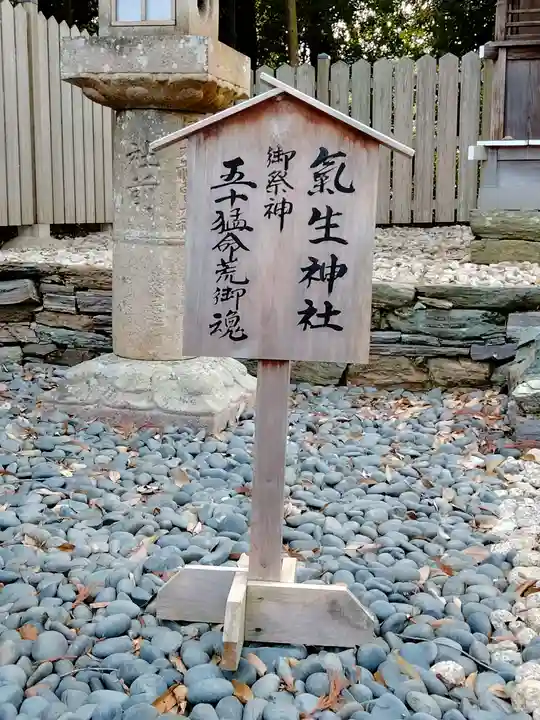 氣生神社
御祭神
五十猛命荒御魂